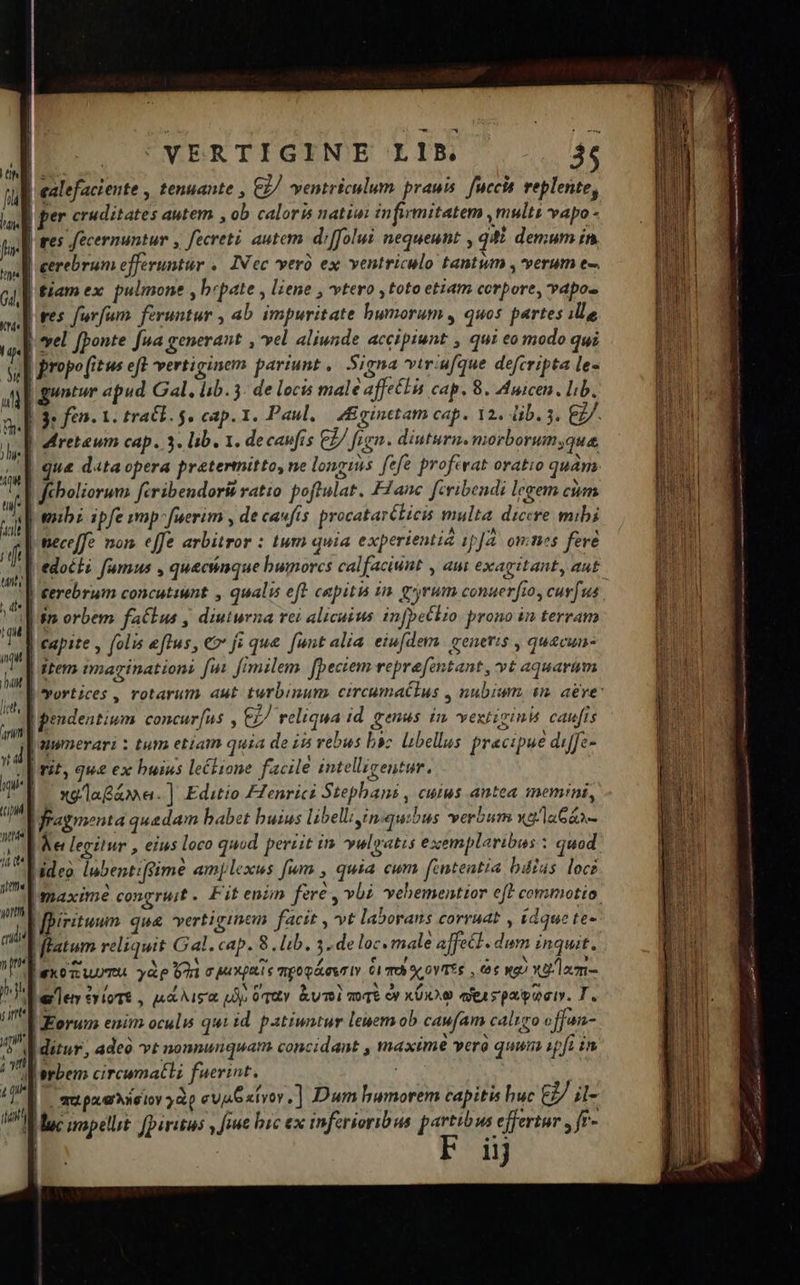 VERTIGINE LIB. 35
calefaciente, tenuante, &/ ventriculum prauis succis replente,
per cruditates autem, ob caloris natiui infirmitatem, multi vapo-
res secernuntur, secreti autem dissolui nequeunt, qui demum in
cerebrum efferuntur. Nec verò ex ventriculo tantùm, verum e-
tiam ex pulmone, hepate, liene, vtero, toto etiam corpore, vapo-
res sursum feruntur, ab impuritate humorum, quos partes ille
vel sponte sua generant, vel aliunde accipiunt, qui eo modo qui
propositus est vertiginem pariunt. Signa vtriusque descripta le-
guntur apud Gal. lib. 3. de locis malè affectis cap. 8. Auicen. lib.
3. fen. 1. tract. 5. cap. 1. Paul. Æginetam cap. 12. lib. 3. &/.
Areteum cap. 3. lib. 1. de causis &/ sign. diuturn. morborum, que
que data opera pretermitto, ne longiùs sese proferat oratio quàm
scholiorum scribendorū ratio postulat. Hanc scribendi legem cùm
mihi ipse imposuerim, de causis procatarcticis multa dicere mihi
necesse non esse arbitror: tum quia experientiâ ipsâ omnes ferè
edocti sumus, quecúnque humores calfaciunt, aut exagitant, aut
cerebrum concutiunt, qualis est capitis in gyrum conuersio, cursus
in orbem factus, diuturna rei alicuius inspectio prono in terram
capite, solis estus, & si que sunt alia eiusdem generis, quecun-
item imaginationi sui similem speciem representant, vt aquarùm
vortices, rotarum aut turbinum circumactus, nubium in aëre
pendentium concursus, &/ reliqua id genus in vertiginis causis
numerari: tum etiam quia de iis rebus hic libellus precipuè disse-
rit, que ex huius lectione facilè intelligentur.
καταβάλλει.] Editio Henrici Stephani, cuius antea memini,
fragmenta quedam habet huius libelli, in quibus verbum καταβάλ-
λει legitur, eius loco quod periit in vulgatis exemplaribus: quod
ideò lubentissimè amplexus sum, quia cum sententia huius loci
maximè congruit. Fit enim ferè, vbi vehementior est commotio
spirituum que vertiginem facit, vt laborans corruat, idque te-
statum reliquit Gal. cap. 8. lib. 3. de loc. malè affect. dum inquit.
σκοτοῦνται γὰρ ἐπὶ σμικραῖς προφάσεσιν οἱ τοῦτ᾽ ἔχοντες, ὡς καὶ καταπί-
πτειν ἐνίοτε, μάλιστα μὲν ὅταν αὐτοί ποτε ἐν κύκλῳ περιστραφῶσιν. Τ.
Eorum enim oculis qui id patiuntur leuem ob causam caligo offun-
ditur, adeò vt nonnunquam concidant, maximè verò quum ipsi in
orbem circumacti fuerint.
παραπλήσιον γὰρ συμβαίνον.] Dum humorem capitis huc &/ il-
luc impellit spiritus, siue hic ex inferioribus partibus effertur, si-
F iij